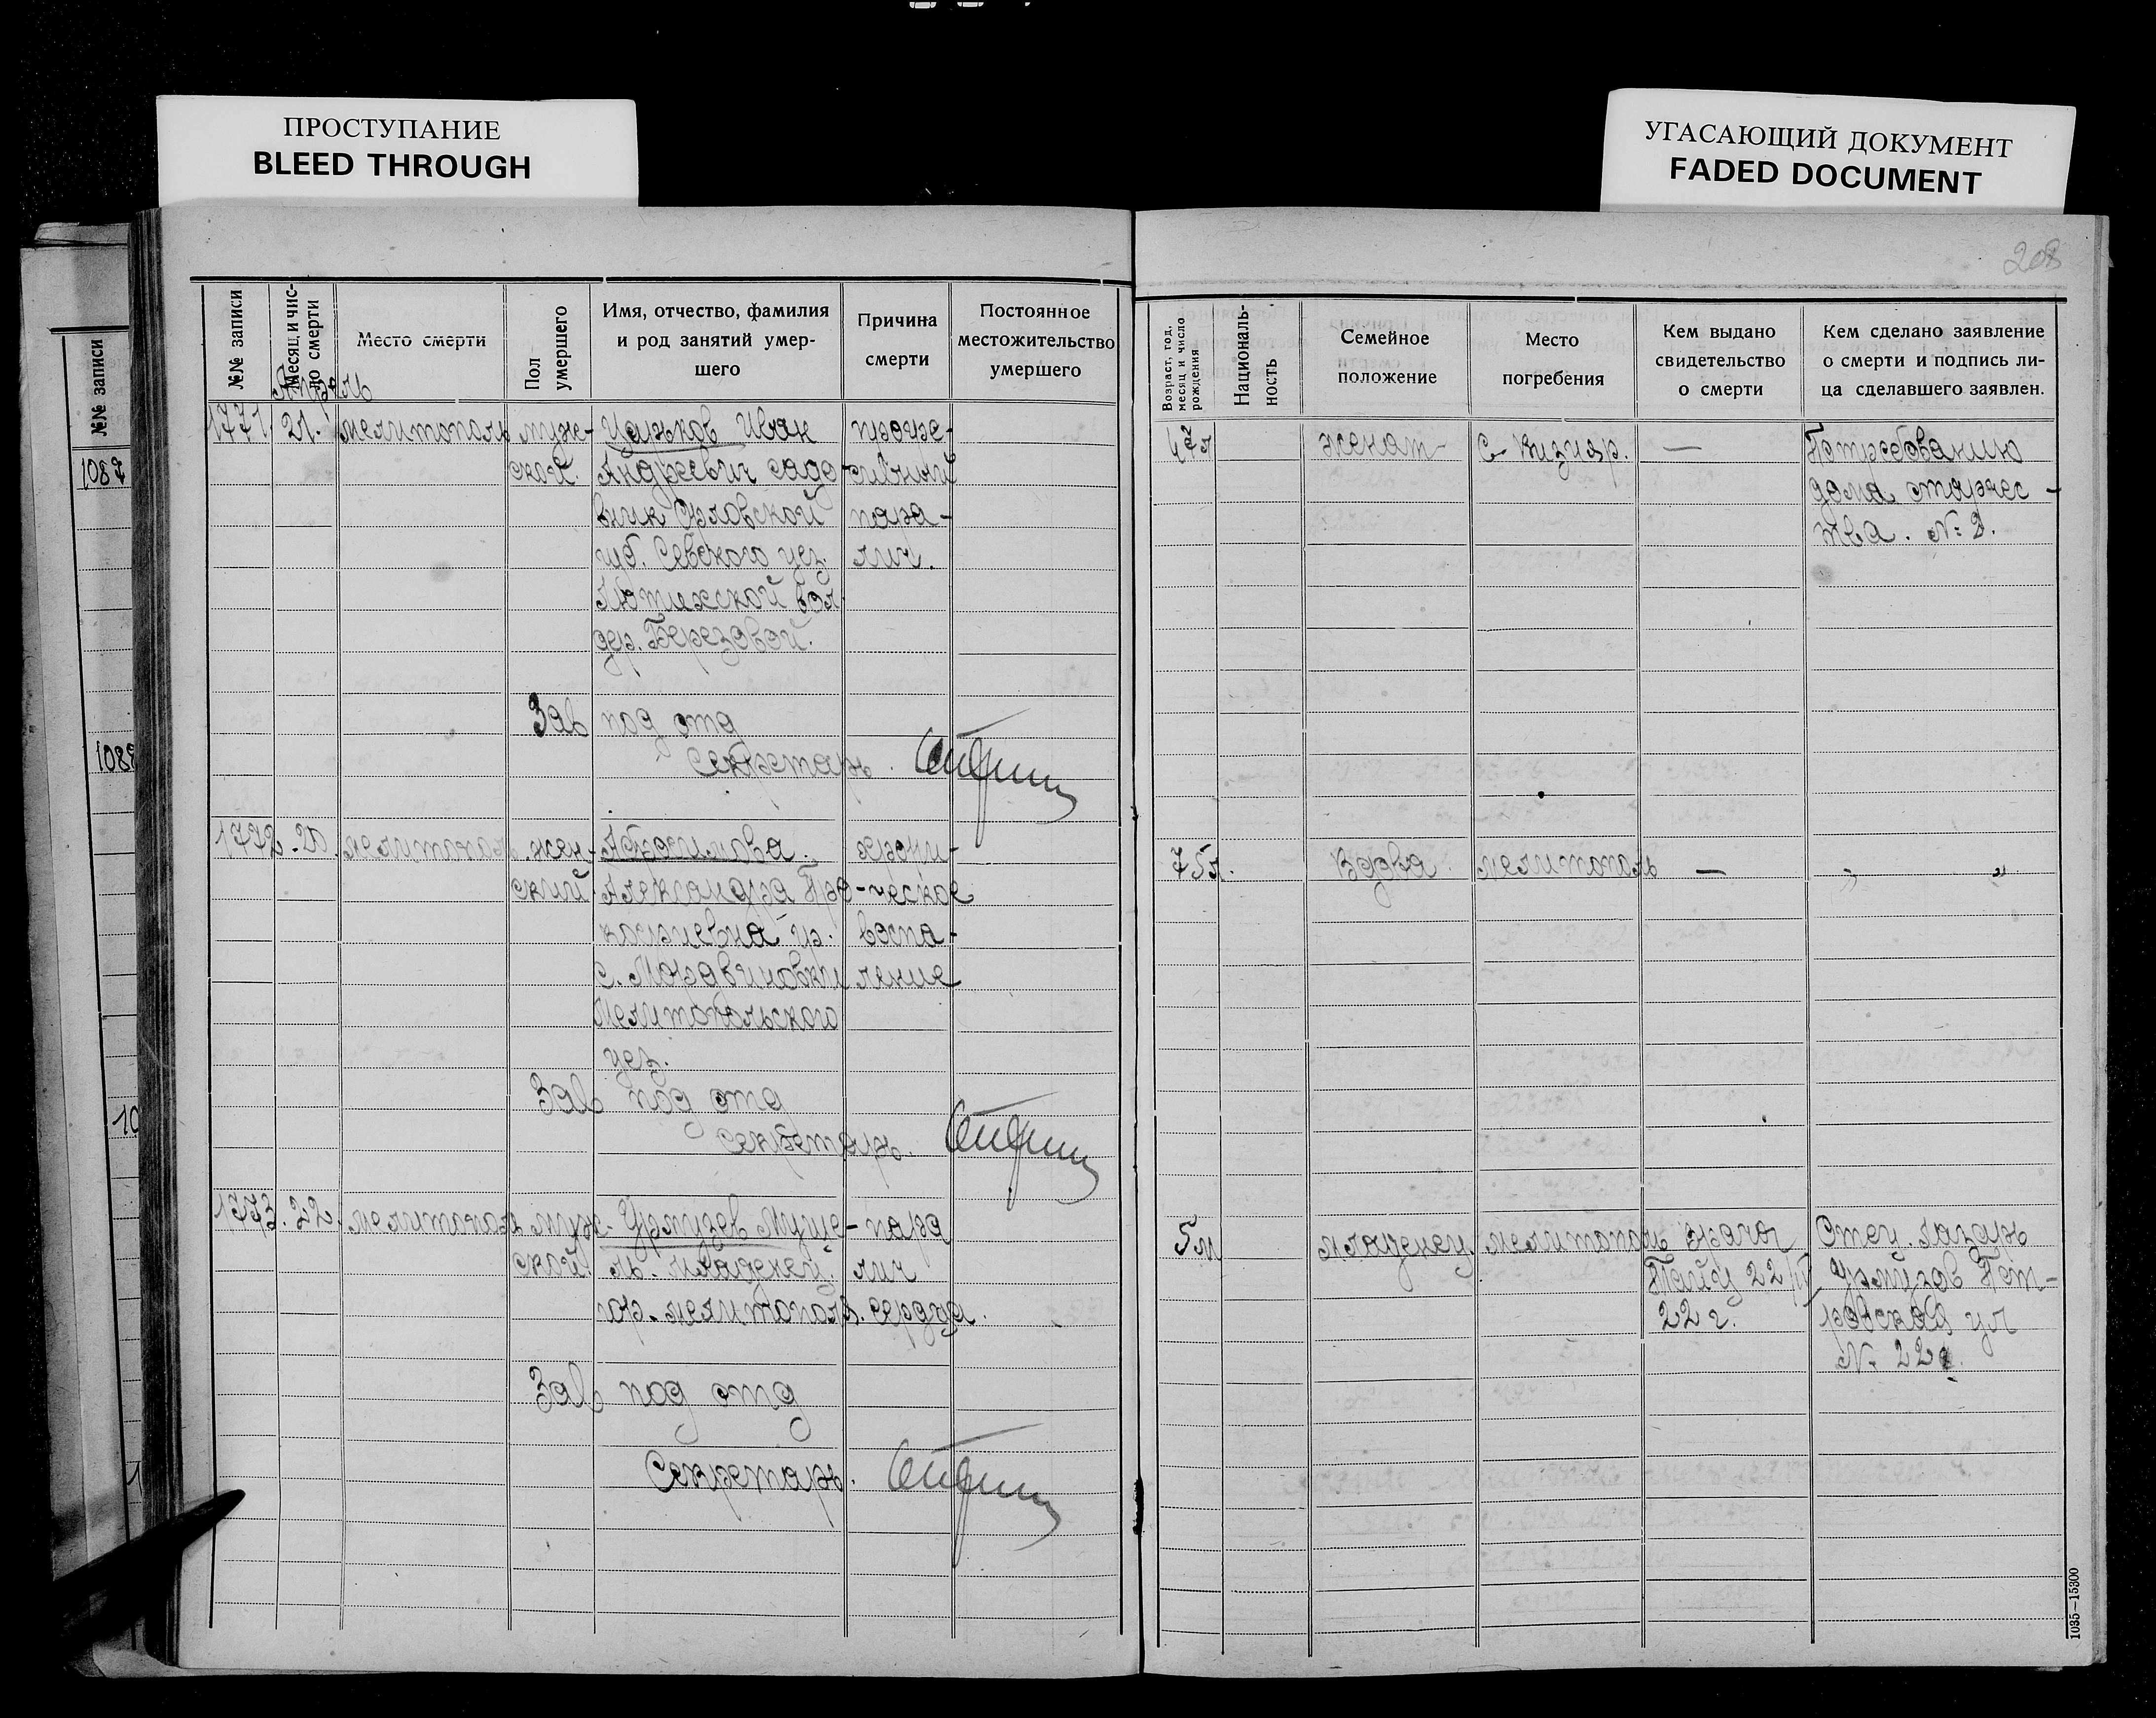 ПРОСТУПАНИЕ
BLEED THROUGH
УГАСАЮЩИЙ ДОКУМЕНТ
FADED DOCUMENT
208
№№ записи
1087
1088
10
1
№№ записи
Месяц и чис-
ло смерти
Место смерти
Пол
умершего
Имя, отчество, фамилия
и род занятий умер-
шего
Причина
смерти
Постоянное
местожительство
умершего
Возраст, год,
месяц и число
рождения
Националь-
ность
Семейное
положение
Место
погребения
Кем выдано
свидетельство
о смерти
Кем сделано заявление
о смерти и подпись ли-
ца сделавшего заявлен.
Апрель
1771. 21. мелитополь муж- Иван
ской. Андреевич садо-
вник Орловской пара-
губ. Севского уез. лич.
вол.
дер. Березовой.
47л женат С- Кизияр. — По требованию
дома старчес-
тва. №2.
Зав под отд
Секретарь.
1772. 20. мелитополь жен- Абросимова. хрони-
ский Александра Про- ческое
из. воспа-
с. Мордвиновки ление
Мелитопольского
уез.
75л. Вдова. мелитополь — " "
Зав под отд
Секретарь.
1773. 22. мелитополь муж- Урмузов
ской. младенец. лич
гор. мелитополя. сердца.
5м младенец. мелитополь врачом Отец. Лазарь
22/IV Урмузов Пет-
22 г. ровской ул
№ 22
Зав под отд
Секретарь.
1035—15300